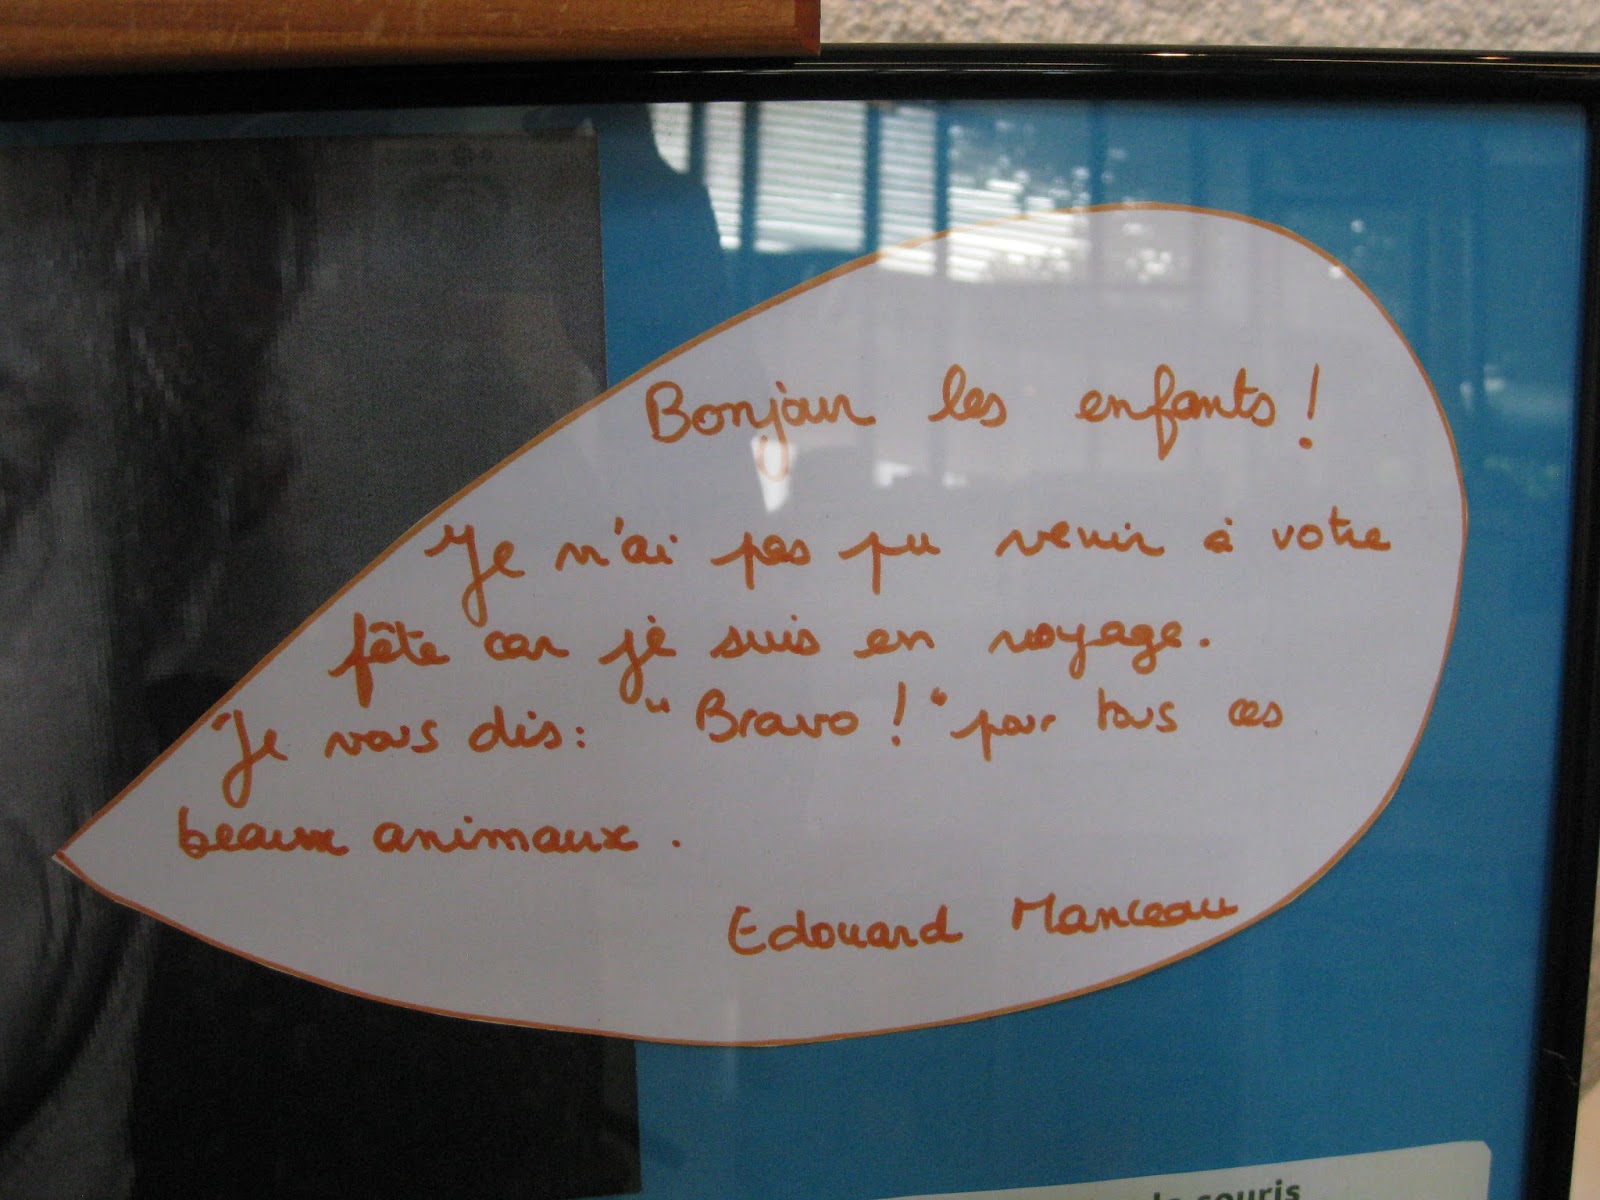 Bonjour les enfants !
Je n'ai pas pu venir à votre
fête car je suis en voyage.
Je vous dis : "Bravo !" pour tous ces
beaux animaux.
Edouard Manceau
souris